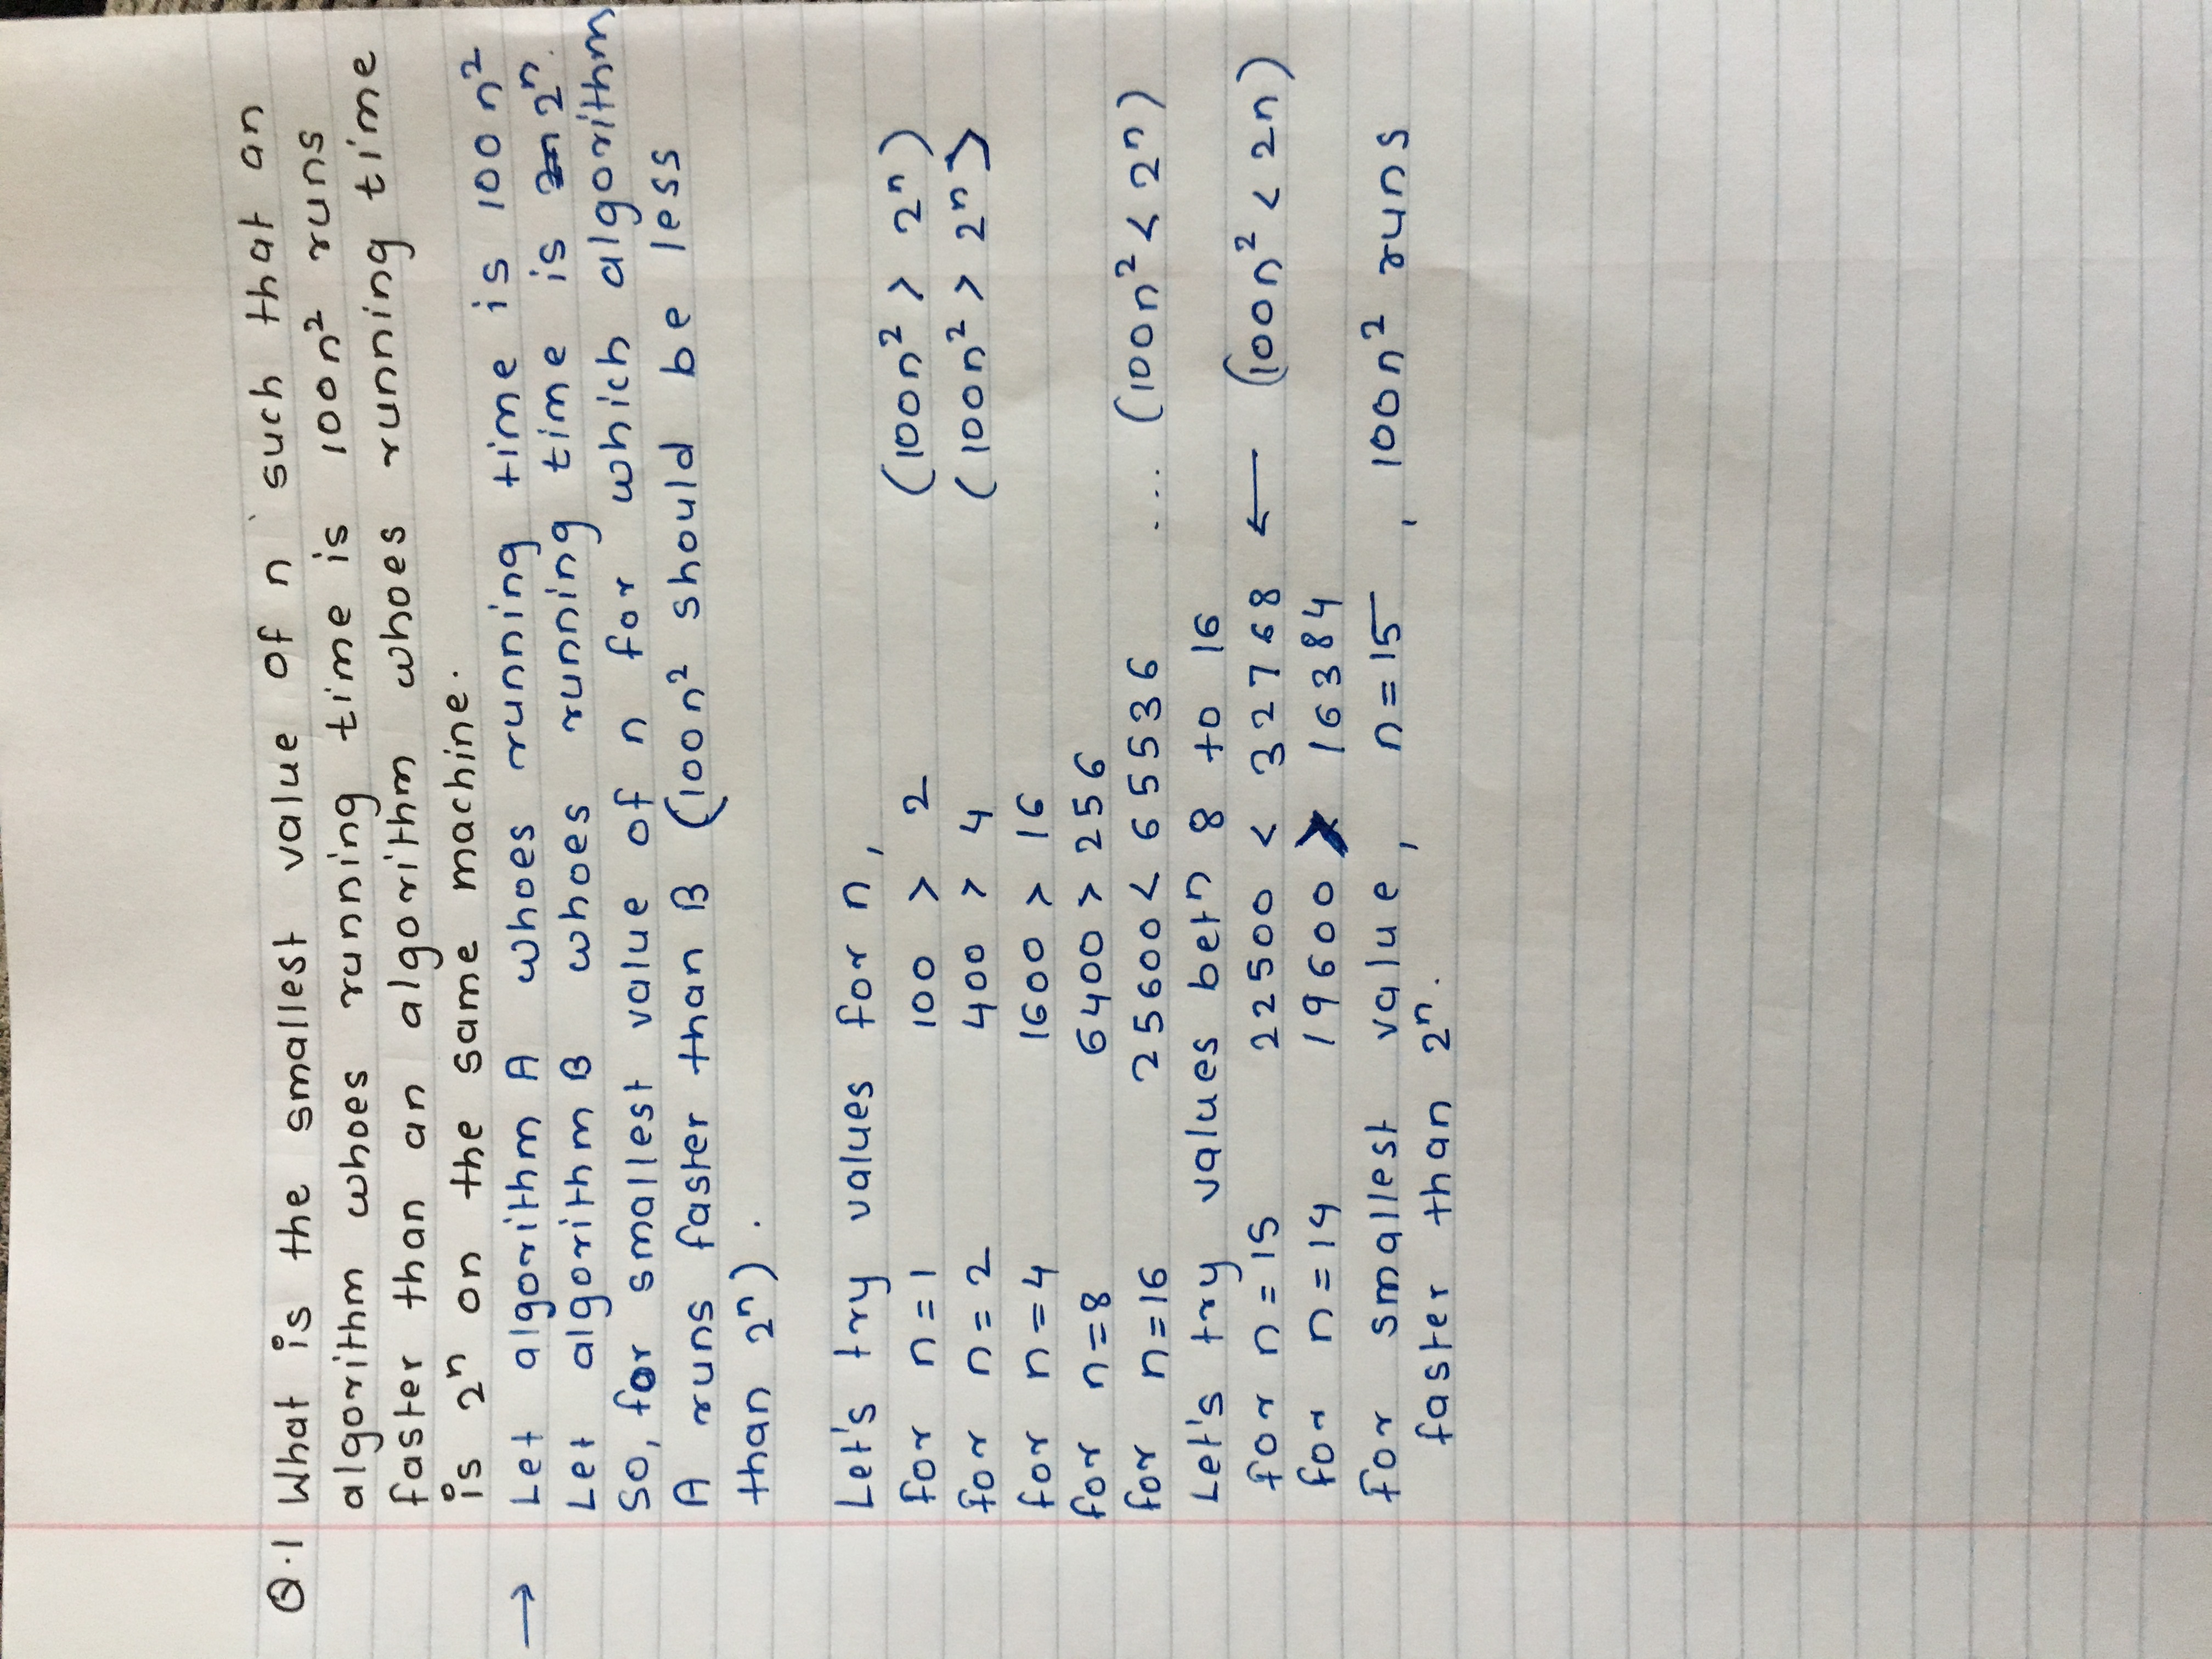 Q.1 What is the smallest value of n such that an
algorithm whoes running time is 100n² runs
faster than an algorithm whoes running time
is 2ⁿ on the same machine.
→ Let algorithm A whoes running time is 100n²
Let algorithm B whoes running time is 2ⁿ.
So, for smallest value of n for which algorithm
A runs faster than B (100n² should be less
than 2ⁿ).
Let's try values for n,
for n=1 100 > 2 (100n² > 2ⁿ)
for n=2 400 > 4 (100n² > 2ⁿ)
for n=4 1600 > 16
for n=8 6400 > 256
for n=16 25600 < 65536 ... (100n² < 2ⁿ)
Let's try values betⁿ 8 to 16
for n=15 22500 < 32768 ← (100n² < 2n)
for n=14 19600 > 16384
for smallest value, n=15, 100n² runs
faster than 2ⁿ.